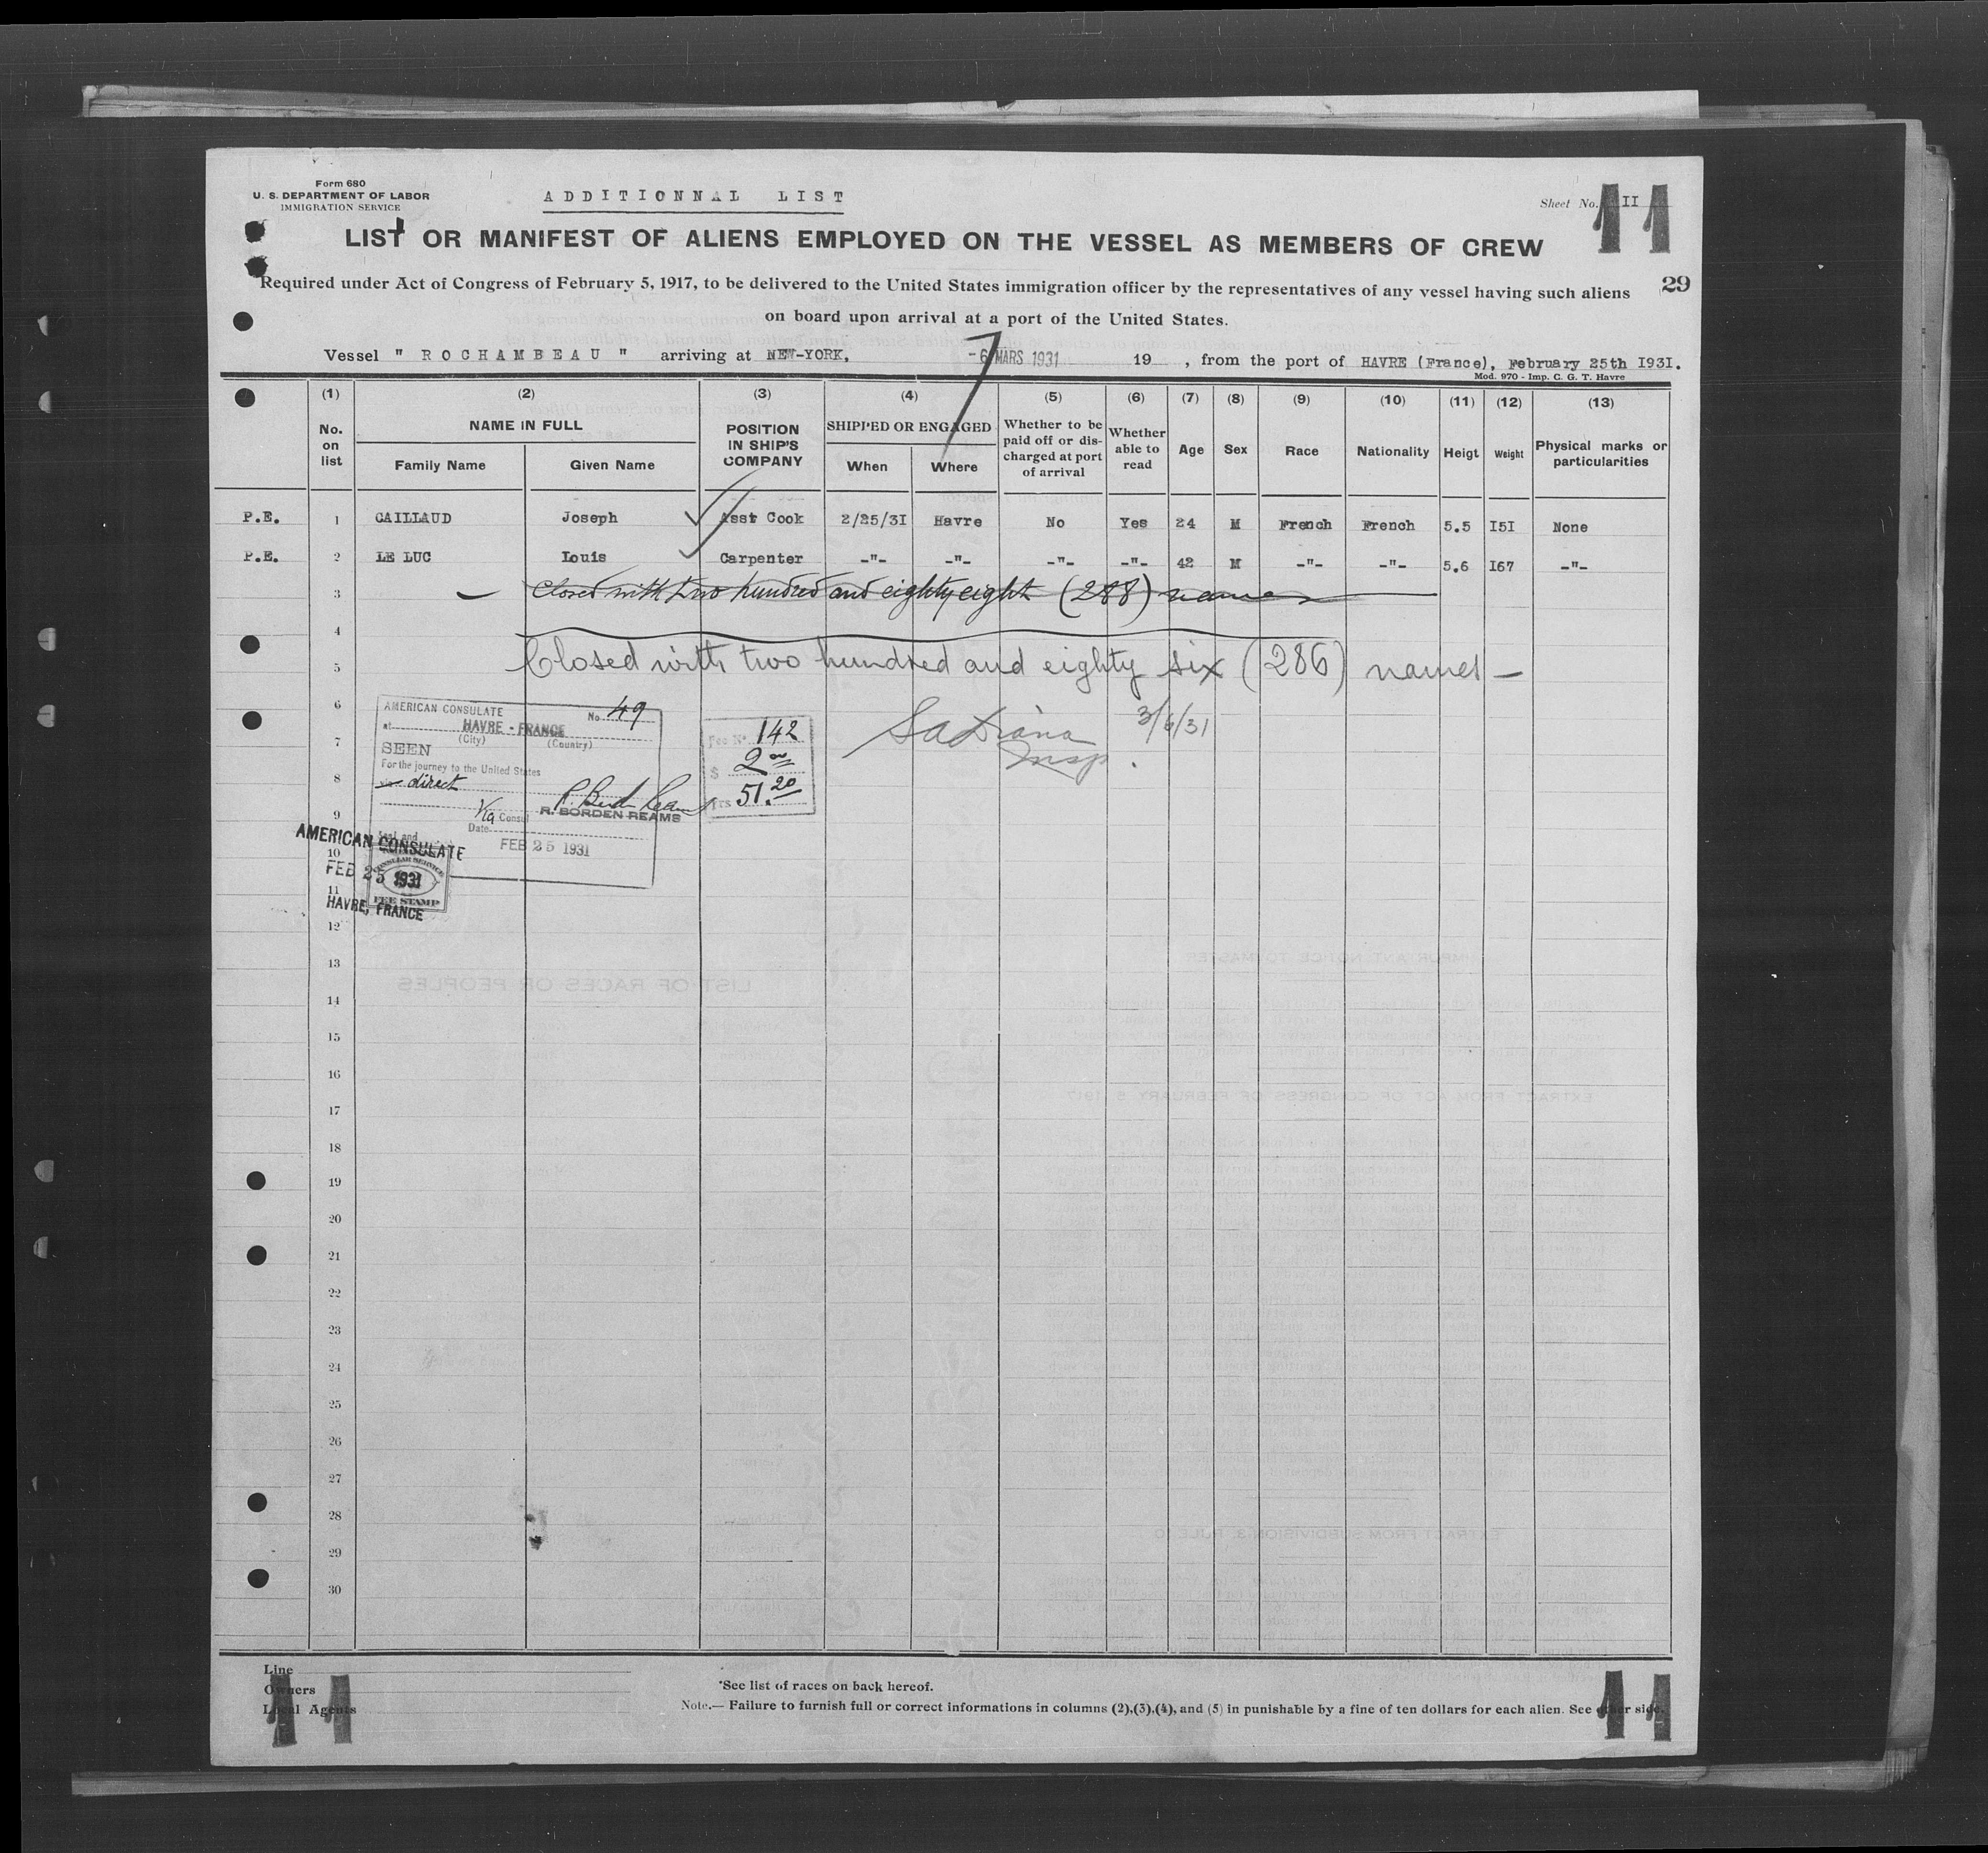 Form 680
U. S. DEPARTMENT OF LABOR
IMMIGRATION SERVICE
ADDITIONNAL LIST
Sheet No. II
11
LIST OR MANIFEST OF ALIENS EMPLOYED ON THE VESSEL AS MEMBERS OF CREW
29
Required under Act of Congress of February 5, 1917, to be delivered to the United States immigration officer by the representatives of any vessel having such aliens
on board upon arrival at a port of the United States.
Vessel " ROCHAMBEAU " arriving at NEW-YORK, -6 MARS 1931 19 , from the port of HAVRE (France), February 25th I93I.
7
Mod. 970 - Imp. C. G. T. Havre
(1) (2) (3) (4) (5) (6) (7) (8) (9) (10) (11) (12) (13)
No. on list NAME IN FULL Family Name Given Name POSITION IN SHIP'S COMPANY SHIPPED OR ENGAGED When Where Whether to be paid off or discharged at port of arrival Whether able to read Age Sex Race Nationality Heigt Weight Physical marks or particularities
P.E. 1 CAILLAUD Joseph Asst Cook 2/25/3I Havre No Yes 24 M French French 5.5 I5I None
P.E. 2 LE LUC Louis Carpenter -"- -"- -"- -"- 42 M -"- -"- 5.6 I67 -"-
3 — Closed with two hundred and eighty eight (288) names
4
5 Closed with two hundred and eighty six (286) names —
6
7
8
9
10
11
12
13
14
15
16
17
18
19
20
21
22
23
24
25
26
27
28
29
30
AMERICAN CONSULATE No. 49
at HAVRE - FRANCE
(City) (Country)
SEEN
For the journey to the United States
via direct
Consul
R. BORDEN REAMS
Date FEB 25 1931
Seal and
Fee No. 142
$ 2 00
Frs 51.20
3/6/31
Insp.
AMERICAN CONSULATE
FEB 25 1931
HAVRE, FRANCE
CONSULAR SERVICE
FEE STAMP
Line
Owners
Local Agents
11
*See list of races on back hereof.
Note.— Failure to furnish full or correct informations in columns (2),(3),(4), and (5) in punishable by a fine of ten dollars for each alien. See other side.
11